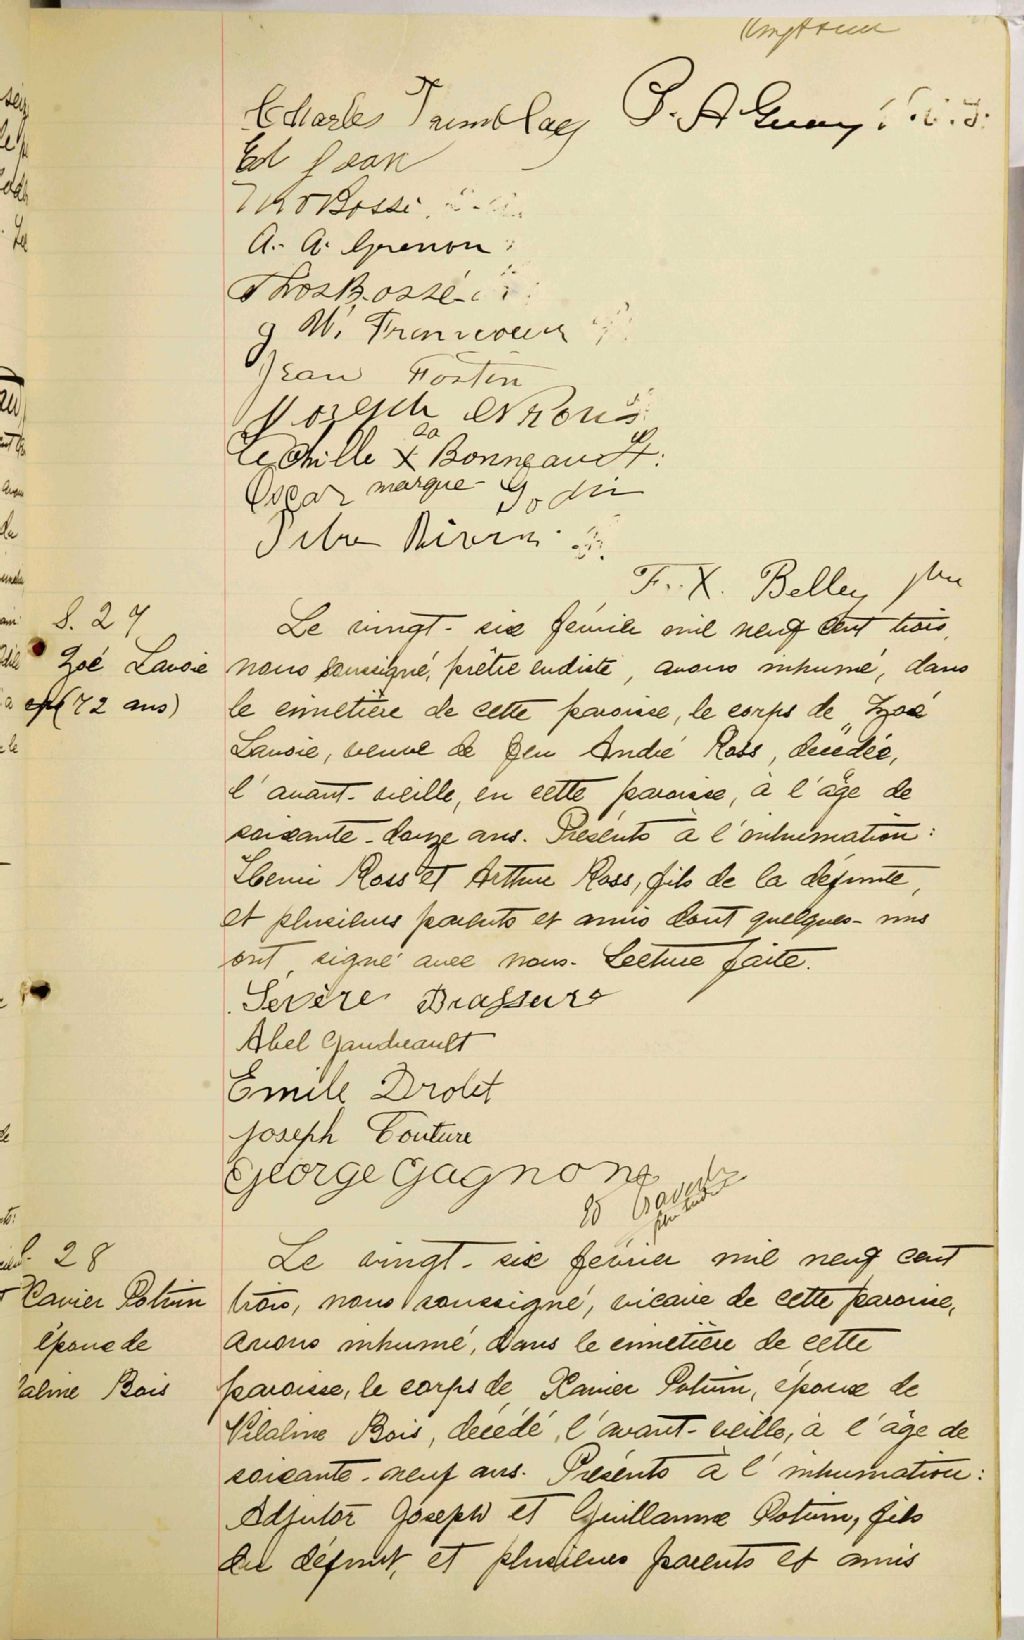 Charles Tremblay P. A Guay
Ed Jean
Bossé
A. A. Grenon
Thos Bossé
Jean Fortin
Joseph
Achille sa X Bonneau
Oscar marque Godin
Rivrin
F. X. Belley ptre
S. 27
Zoé Lavoie
(72 ans)
Le vingt-six février mil neuf cent trois,
nous soussigné, prêtre eudiste, avons inhumé, dans
le cimetière de cette paroisse, le corps de Zoé
Lavoie, veuve de feu André Ross, décédée,
l'avant-veille, en cette paroisse, à l'âge de
soixante-douze ans. Présents à l'inhumation:
Henri Ross et Arthur Ross, fils de la défunte,
et plusieurs parents et amis dont quelques-uns
ont signé avec nous. Lecture faite.
Sévère Brassard
Abel Gaudreault
Emile Drolet
Joseph Couture
George Gagnon
S. 28
Xavier Potvin
époux de
Bois
Le vingt-six février mil neuf cent
trois, nous soussigné, vicaire de cette paroisse,
avons inhumé, dans le cimetière de cette
paroisse, le corps de Xavier Potvin, époux de
Bois, décédé, l'avant-veille, à l'âge de
soixante-neuf ans. Présents à l'inhumation:
Adjutor Joseph et Guillaume Potvin, fils
du défunt, et plusieurs parents et amis